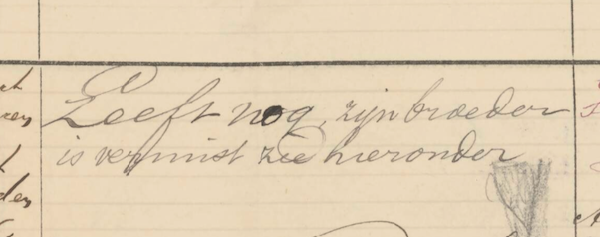 Leeft nog, zijn broeder
is vermist zie hieronder